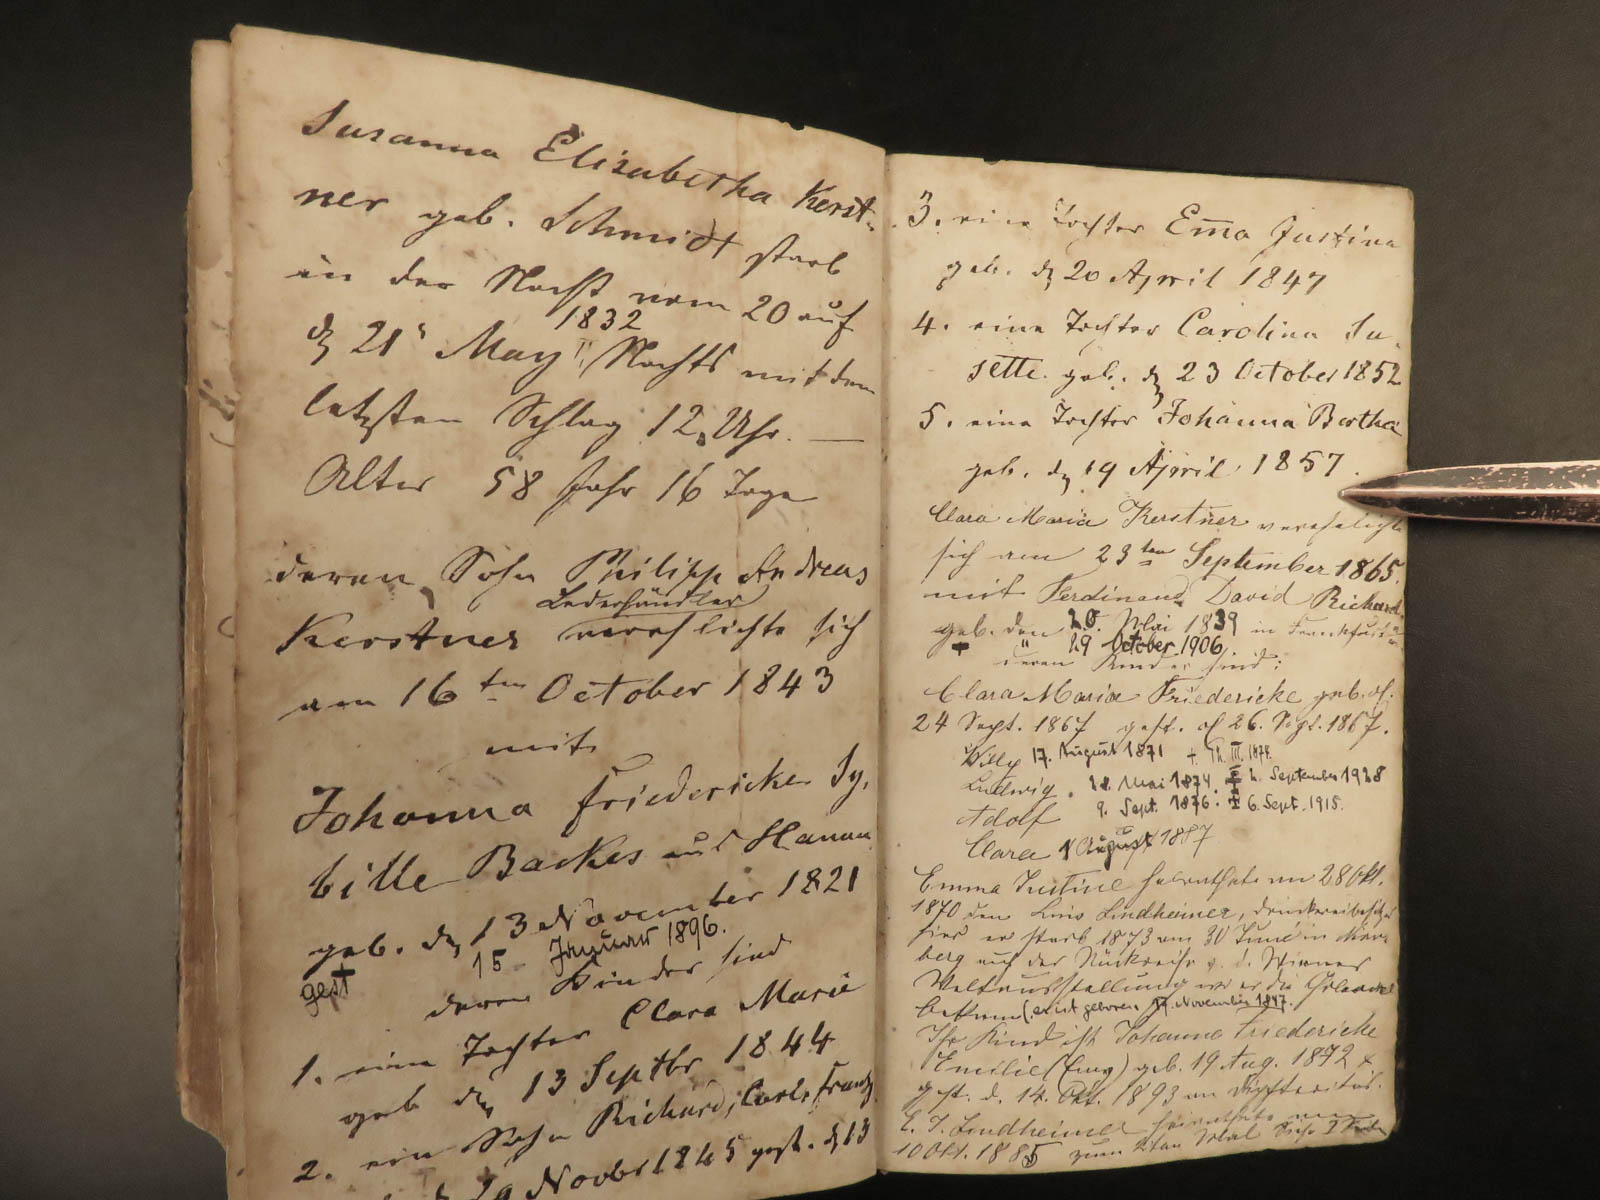 Susanna Elisabetha Kerst-
ner geb. Schmidt starb
in der Nacht vom 20 auf
1832
d 21t May, Nachts mit dem
letzten Schlag 12 Uhr. —
Alter 58 Jahr 16 Tage
deren Sohn Philipp Andreas
Lederhändler
Kerstner verehlichte sich
am 16ten October 1843
mit
Johanna Friedericke Sy.
bille Backes aus Hanau
geb. d 13 November 1821
gest 15 Januar 1896.
deren Kinder sind
1. eine Tochter Clara Marie
geb d 13 Septbr 1844
2. ein Sohn Richard, Carl, Frantz
19 Novbr 1845 gest. d 13
3. eine Tochter Em̅a Justina
geb. d 20 April 1847
4. eine Tochter Carolina Su-
sette. geb. d 23 October 1852
5. eine Tochter Johanna Bertha
geb. d 19 April 1857.
Clara Maria Kerstner vereheligte
sich am 23ten September 1865.
mit Ferdinand David Richard
geb. den 20. Mai 1839 in Frankfurt
+ " 29 October 1906.
deren Kinder sind:
Clara Maria Friedericke geb. d.
24 Sept. 1867 gest. d 26. Sept. 1867.
Willy 17. August 1871 + III. 1874.
Ludwig. 28. Mai 1874. + 2. September 1928
Adolf 9. Sept. 1876. + 6. Sept. 1915.
Clara 1 August 1887
Emma Justine heirathete am 28 Okt.
1870 den Lino Lindheimer, Druckereibesitzer
hier er starb 1873 am 30 Juni in Nürn-
berg auf der Rückreise v. d. Wiener
Weltausstellung wo er die Cholera
bekam (er ist geboren 17. November 1847.
Ihr Kind ist Johanna Friedericke
Emilie (Emy) geb. 19 Aug. 1872 &
gest. d. 14. Okt. 1893 an Diphteritis.
E. J. Lindheimer heirathete am
10 Okt. 1885 zum 2ten Mal Siehe